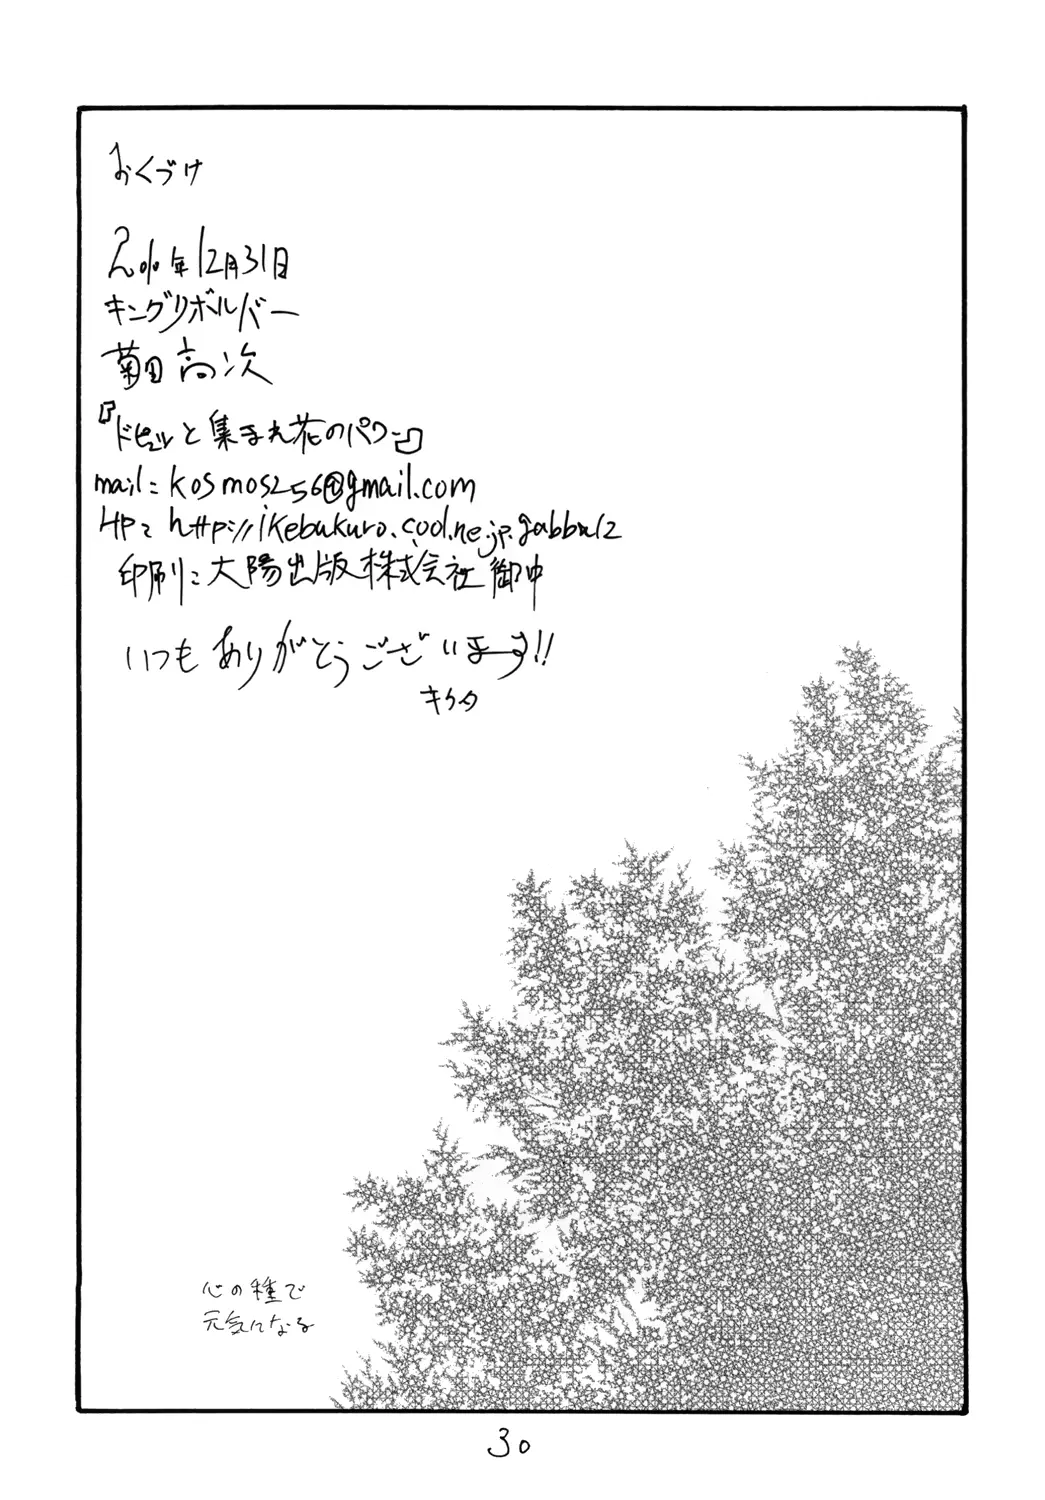 おくづけ
2010年12月31日
キングリボルバー
菊田高次
『ドピュッと集まれ花のパワー』
mail: kosmos256@gmail.com
HP: http://ikebukuro.cool.ne.jp.gabba12
印刷: 大陽出版株式会社 御中
いつもありがとうございます!!
キクタ
心の種で
元気になる
30